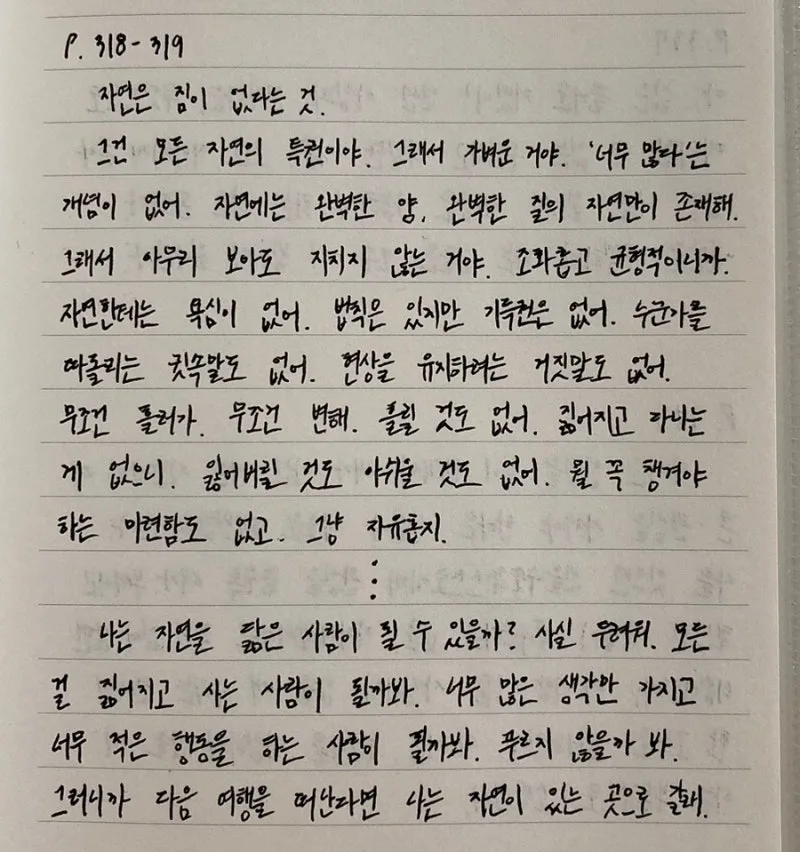 P. 318-319
자연은 짐이 없다는 것.
그건 모든 자연의 특권이야. 그래서 가벼운 거야. '너무 많다'는
개념이 없어. 자연에는 완벽한 양, 완벽한 질의 자연만이 존재해.
그래서 아무리 보아도 지치지 않는 거야. 조화롭고 균형적이니까.
자연한테는 욕심이 없어. 법칙은 있지만 기득권은 없어. 누군가를
따돌리는 귓속말도 없어. 현상을 유지하려는 거짓말도 없어.
무조건 흘러가. 무조건 변해. 흘릴 것도 없어. 짊어지고 다니는
게 없으니. 잃어버릴 것도 아쉬울 것도 없어. 뭘 꼭 챙겨야
하는 미련함도 없고. 그냥 자유롭지.
⋮
나는 자연을 닮은 사람이 될 수 있을까? 사실 두려워. 모든
걸 짊어지고 사는 사람이 될까봐. 너무 많은 생각만 가지고
너무 적은 행동을 하는 사람이 될까봐. 푸르지 않을가 봐.
그러니까 다음 여행을 떠난다면 나는 자연이 있는 곳으로 갈래.